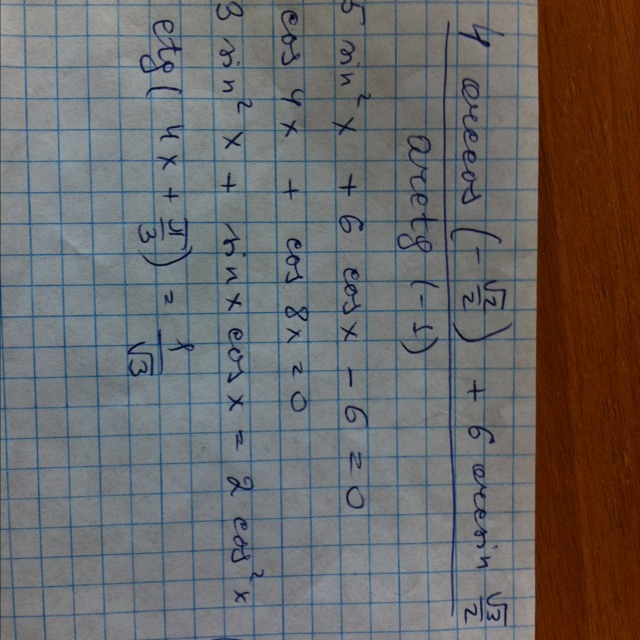 4 arccos (-√2/2) + 6 arcsin √3/2
arctg (-1)
5 sin² x + 6 cos x - 6 = 0
cos 4x + cos 8x = 0
3 sin² x + sin x cos x = 2 cos² x
ctg (4x + π/3) = 1/√3